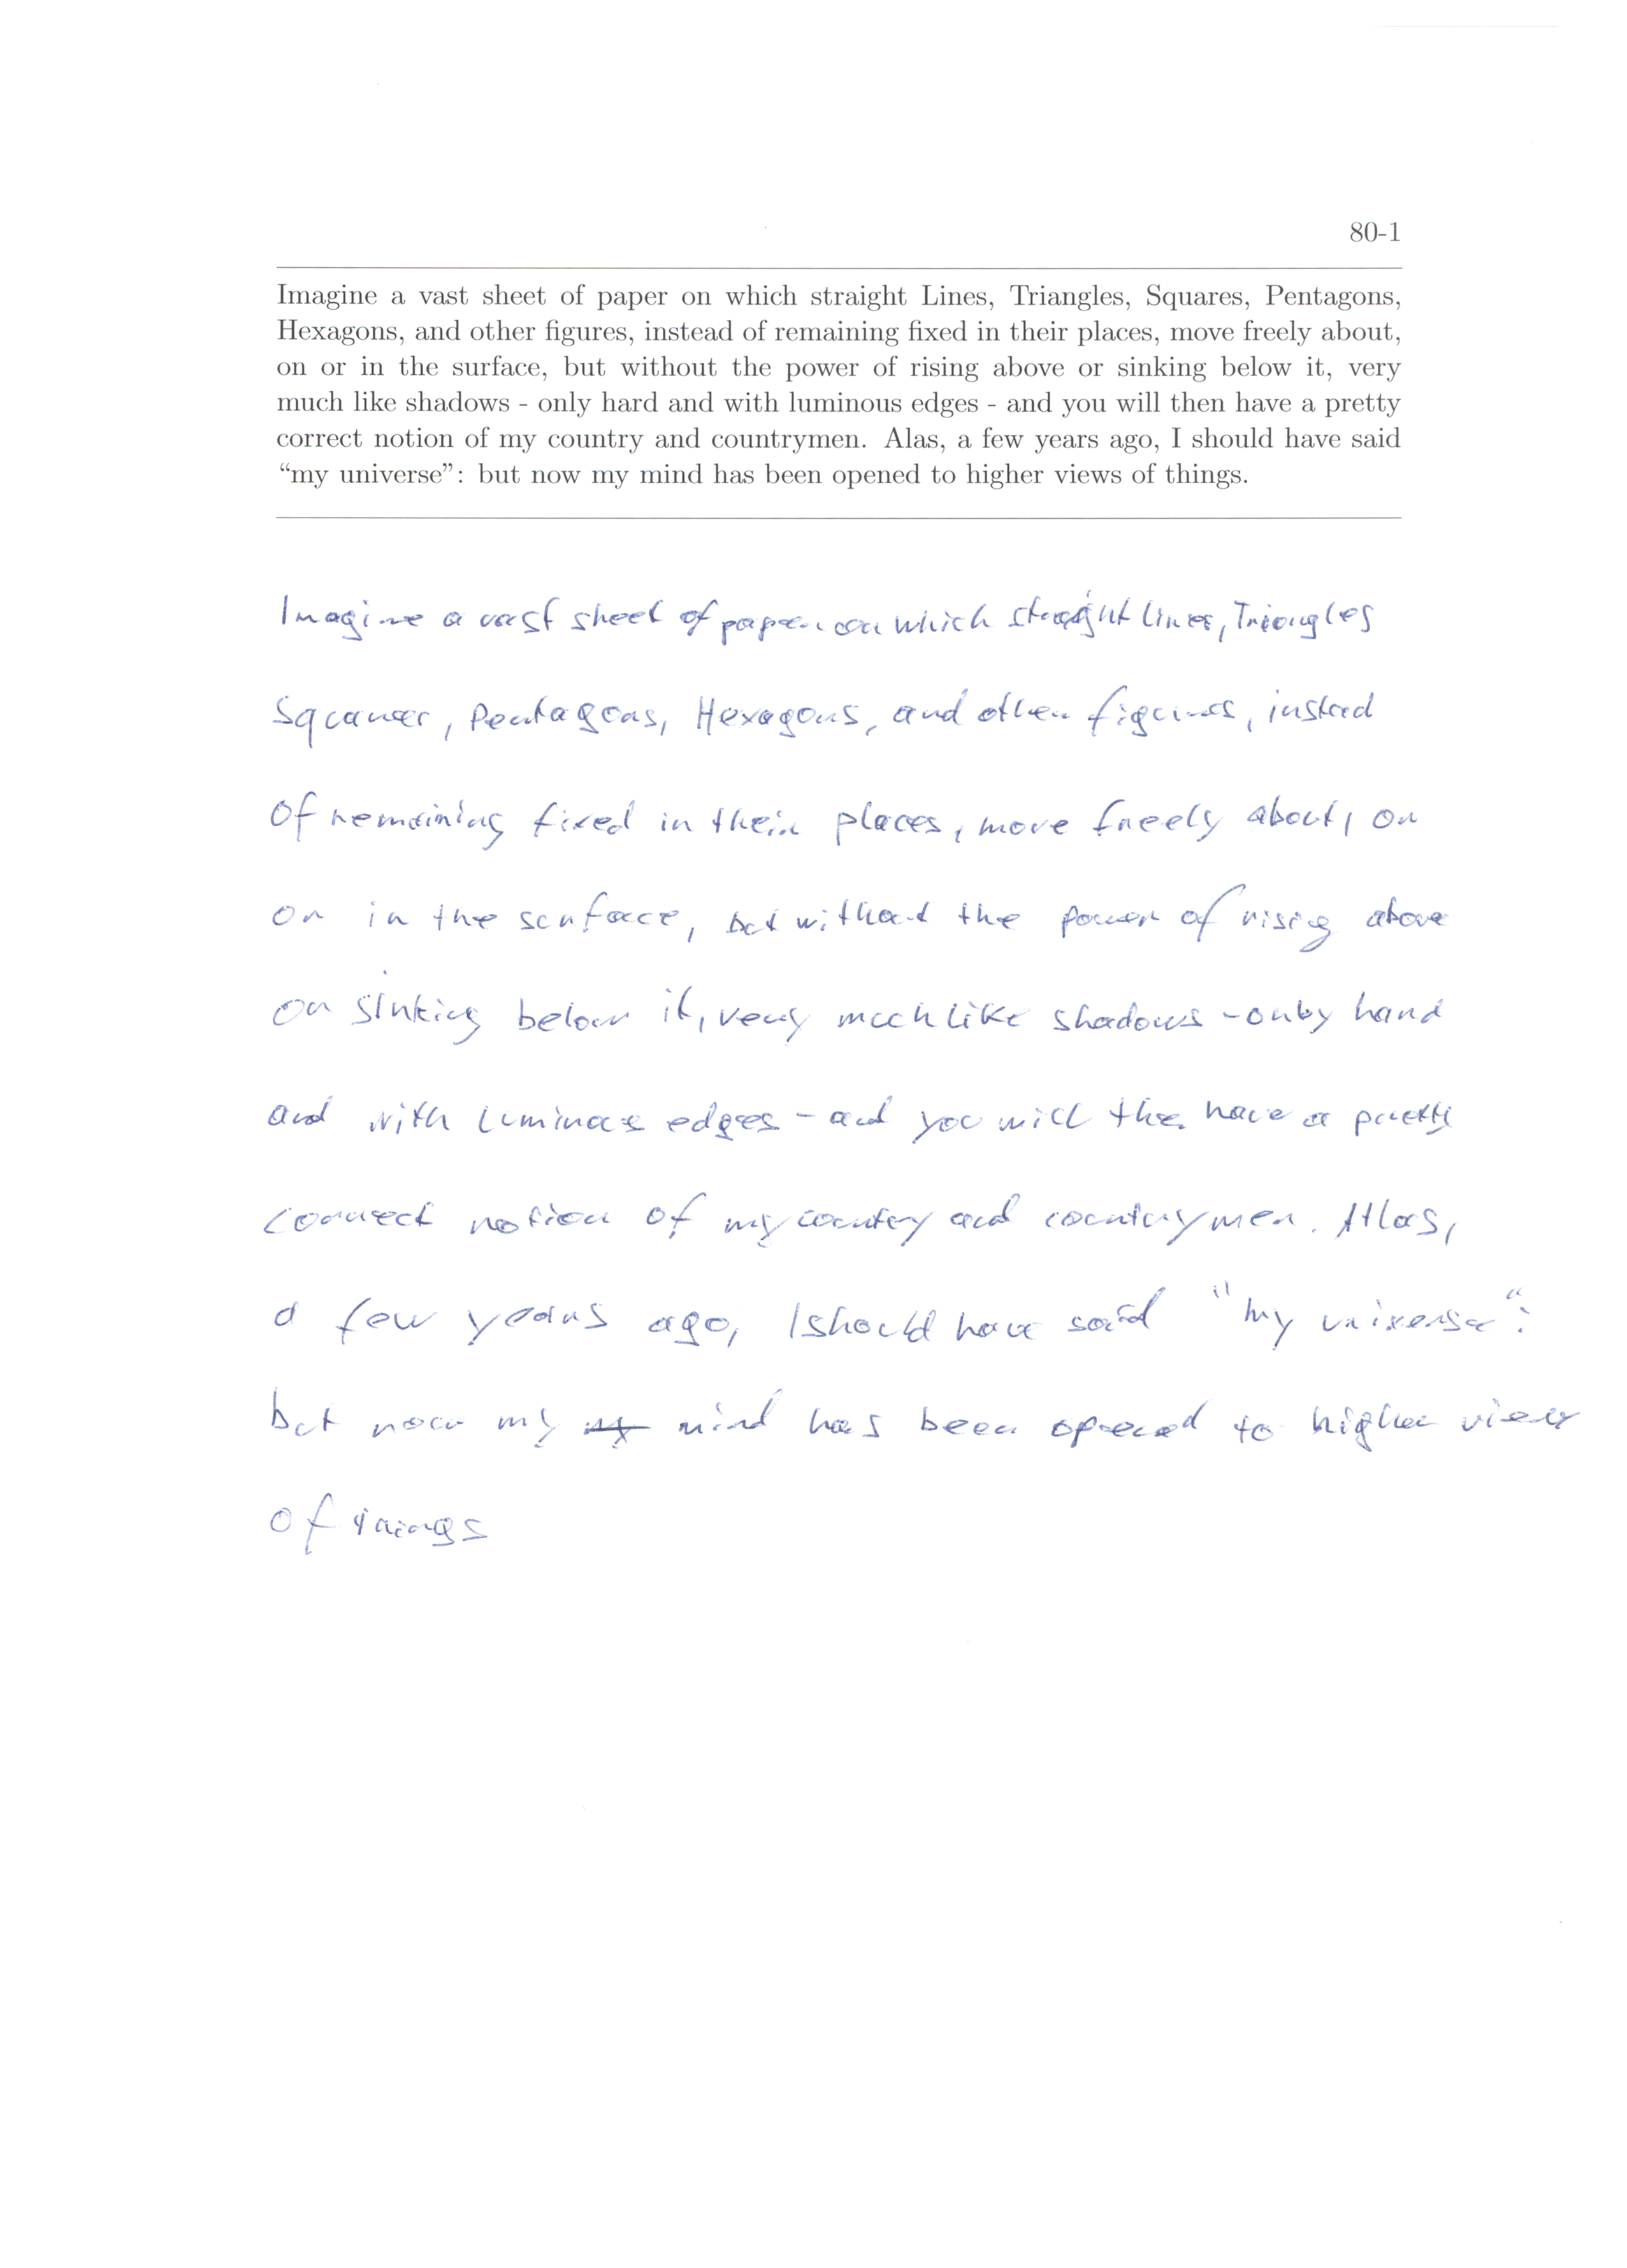 80-1
Imagine a vast sheet of paper on which straight Lines, Triangles, Squares, Pentagons,
Hexagons, and other figures, instead of remaining fixed in their places, move freely about,
on or in the surface, but without the power of rising above or sinking below it, very
much like shadows - only hard and with luminous edges - and you will then have a pretty
correct notion of my country and countrymen. Alas, a few years ago, I should have said
“my universe”: but now my mind has been opened to higher views of things.
Imagine a vast sheet of paper on which straight Lines, Triangles
Squares, Pentagons, Hexagons, and other figures, instead
of remaining fixed in their places, move freely about, on
or in the surface, but without the power of rising above
or sinking below it, very much like shadows - only hard
and with luminous edges - and you will then have a pretty
correct notion of my country and countrymen. Atlas,
a few years ago, I should have said "my universe":
but now my mind has been opened to higher views
of things